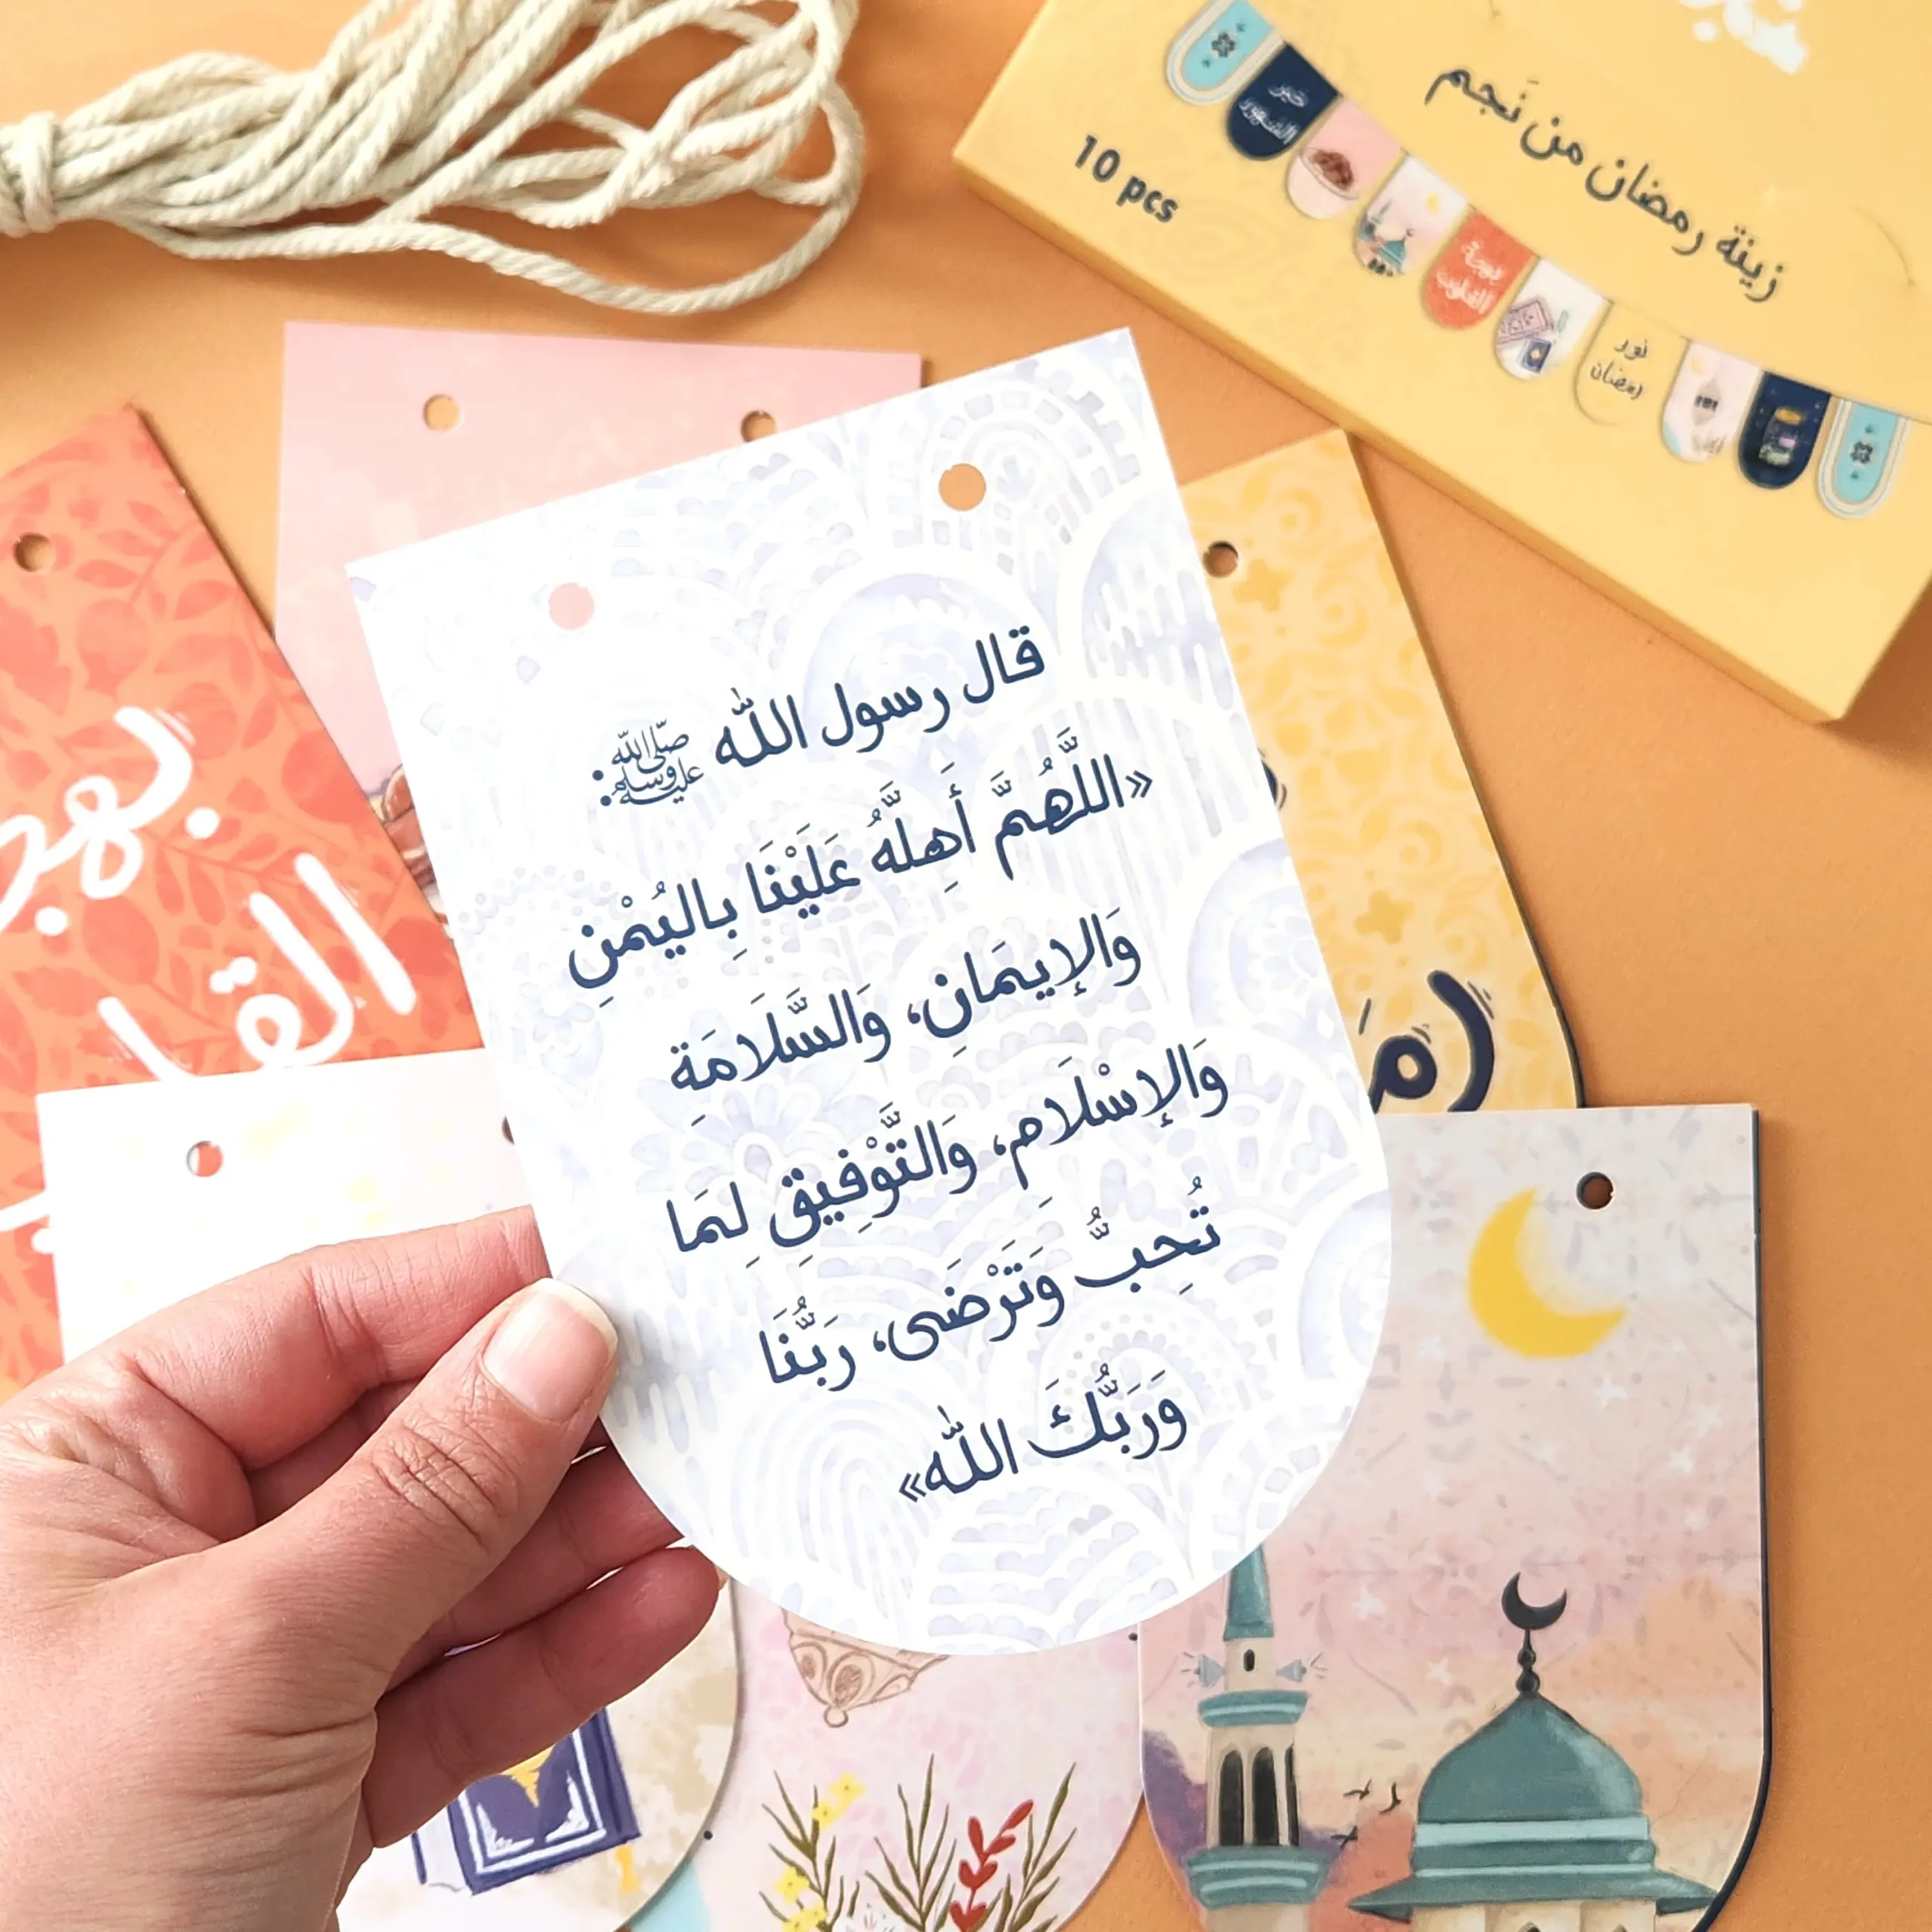 زينة رمضان من نَجم
10 pcs
خير
الشهور
بهجة
القلوب
نور
رمضان
قال رسول الله ﷺ:
«اللَّهُمَّ أَهِلَّهُ عَلَيْنَا بِاليُمْنِ
وَالإِيمَانِ، وَالسَّلَامَةِ
وَالإِسْلَامِ، وَالتَّوْفِيقِ لِمَا
تُحِبُّ وَتَرْضَى، رَبُّنَا
وَرَبُّكَ الله»